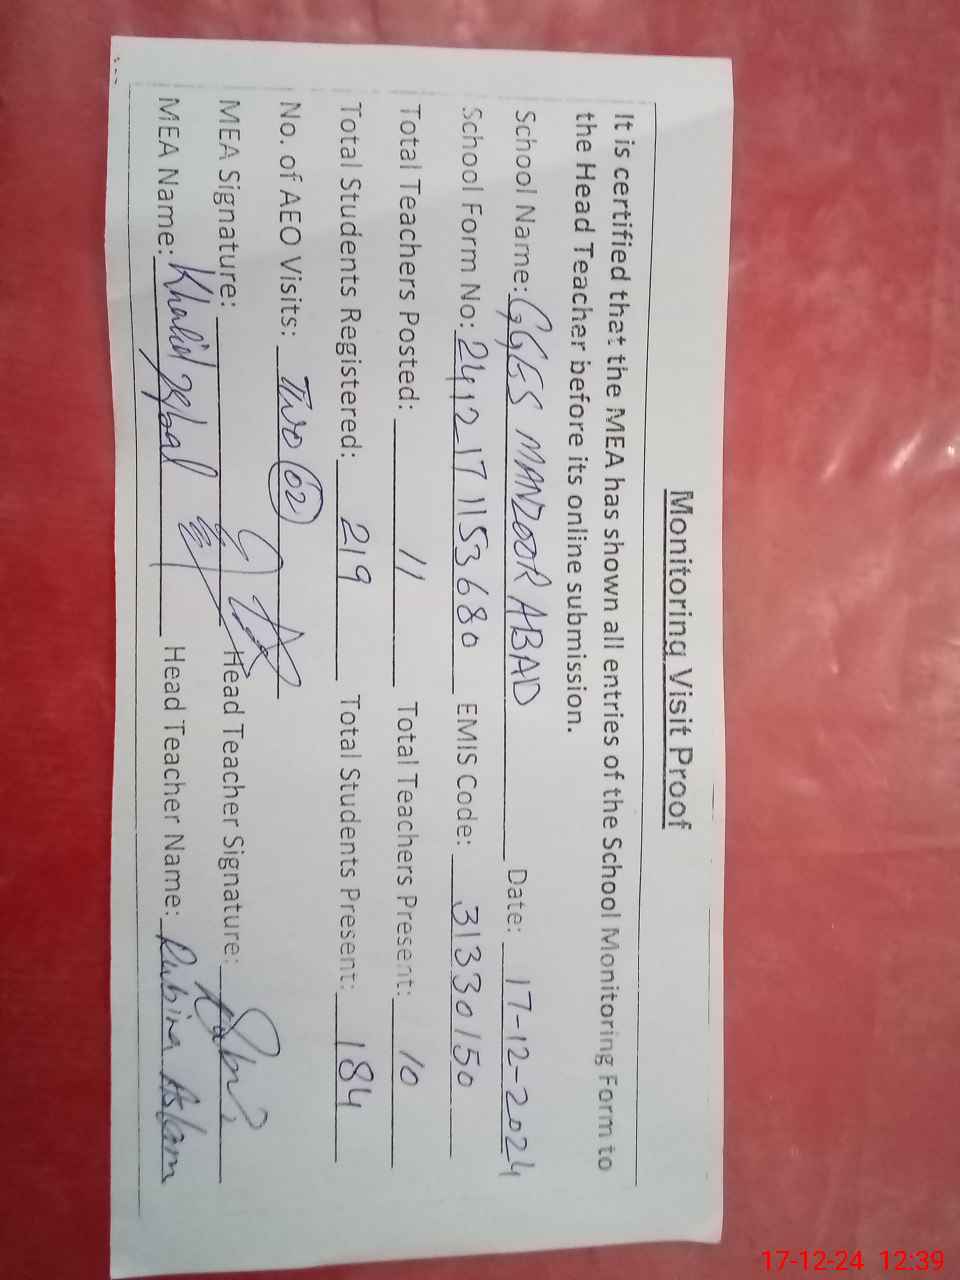 Monitoring Visit Proof
It is certified that the MEA has shown all entries of the School Monitoring Form to
the Head Teacher before its online submission.
School Name: GGES MANZOOR ABAD Date: 17-12-2024
School Form No: 241217 1153680 EMIS Code: 31330150
Total Teachers Posted: 11 Total Teachers Present: 10
Total Students Registered: 219 Total Students Present: 184
No. of AEO Visits: Two (02)
MEA Signature: Head Teacher Signature:
MEA Name: Khalid Iqbal Head Teacher Name: Rubina Aslam
17-12-24 12:39